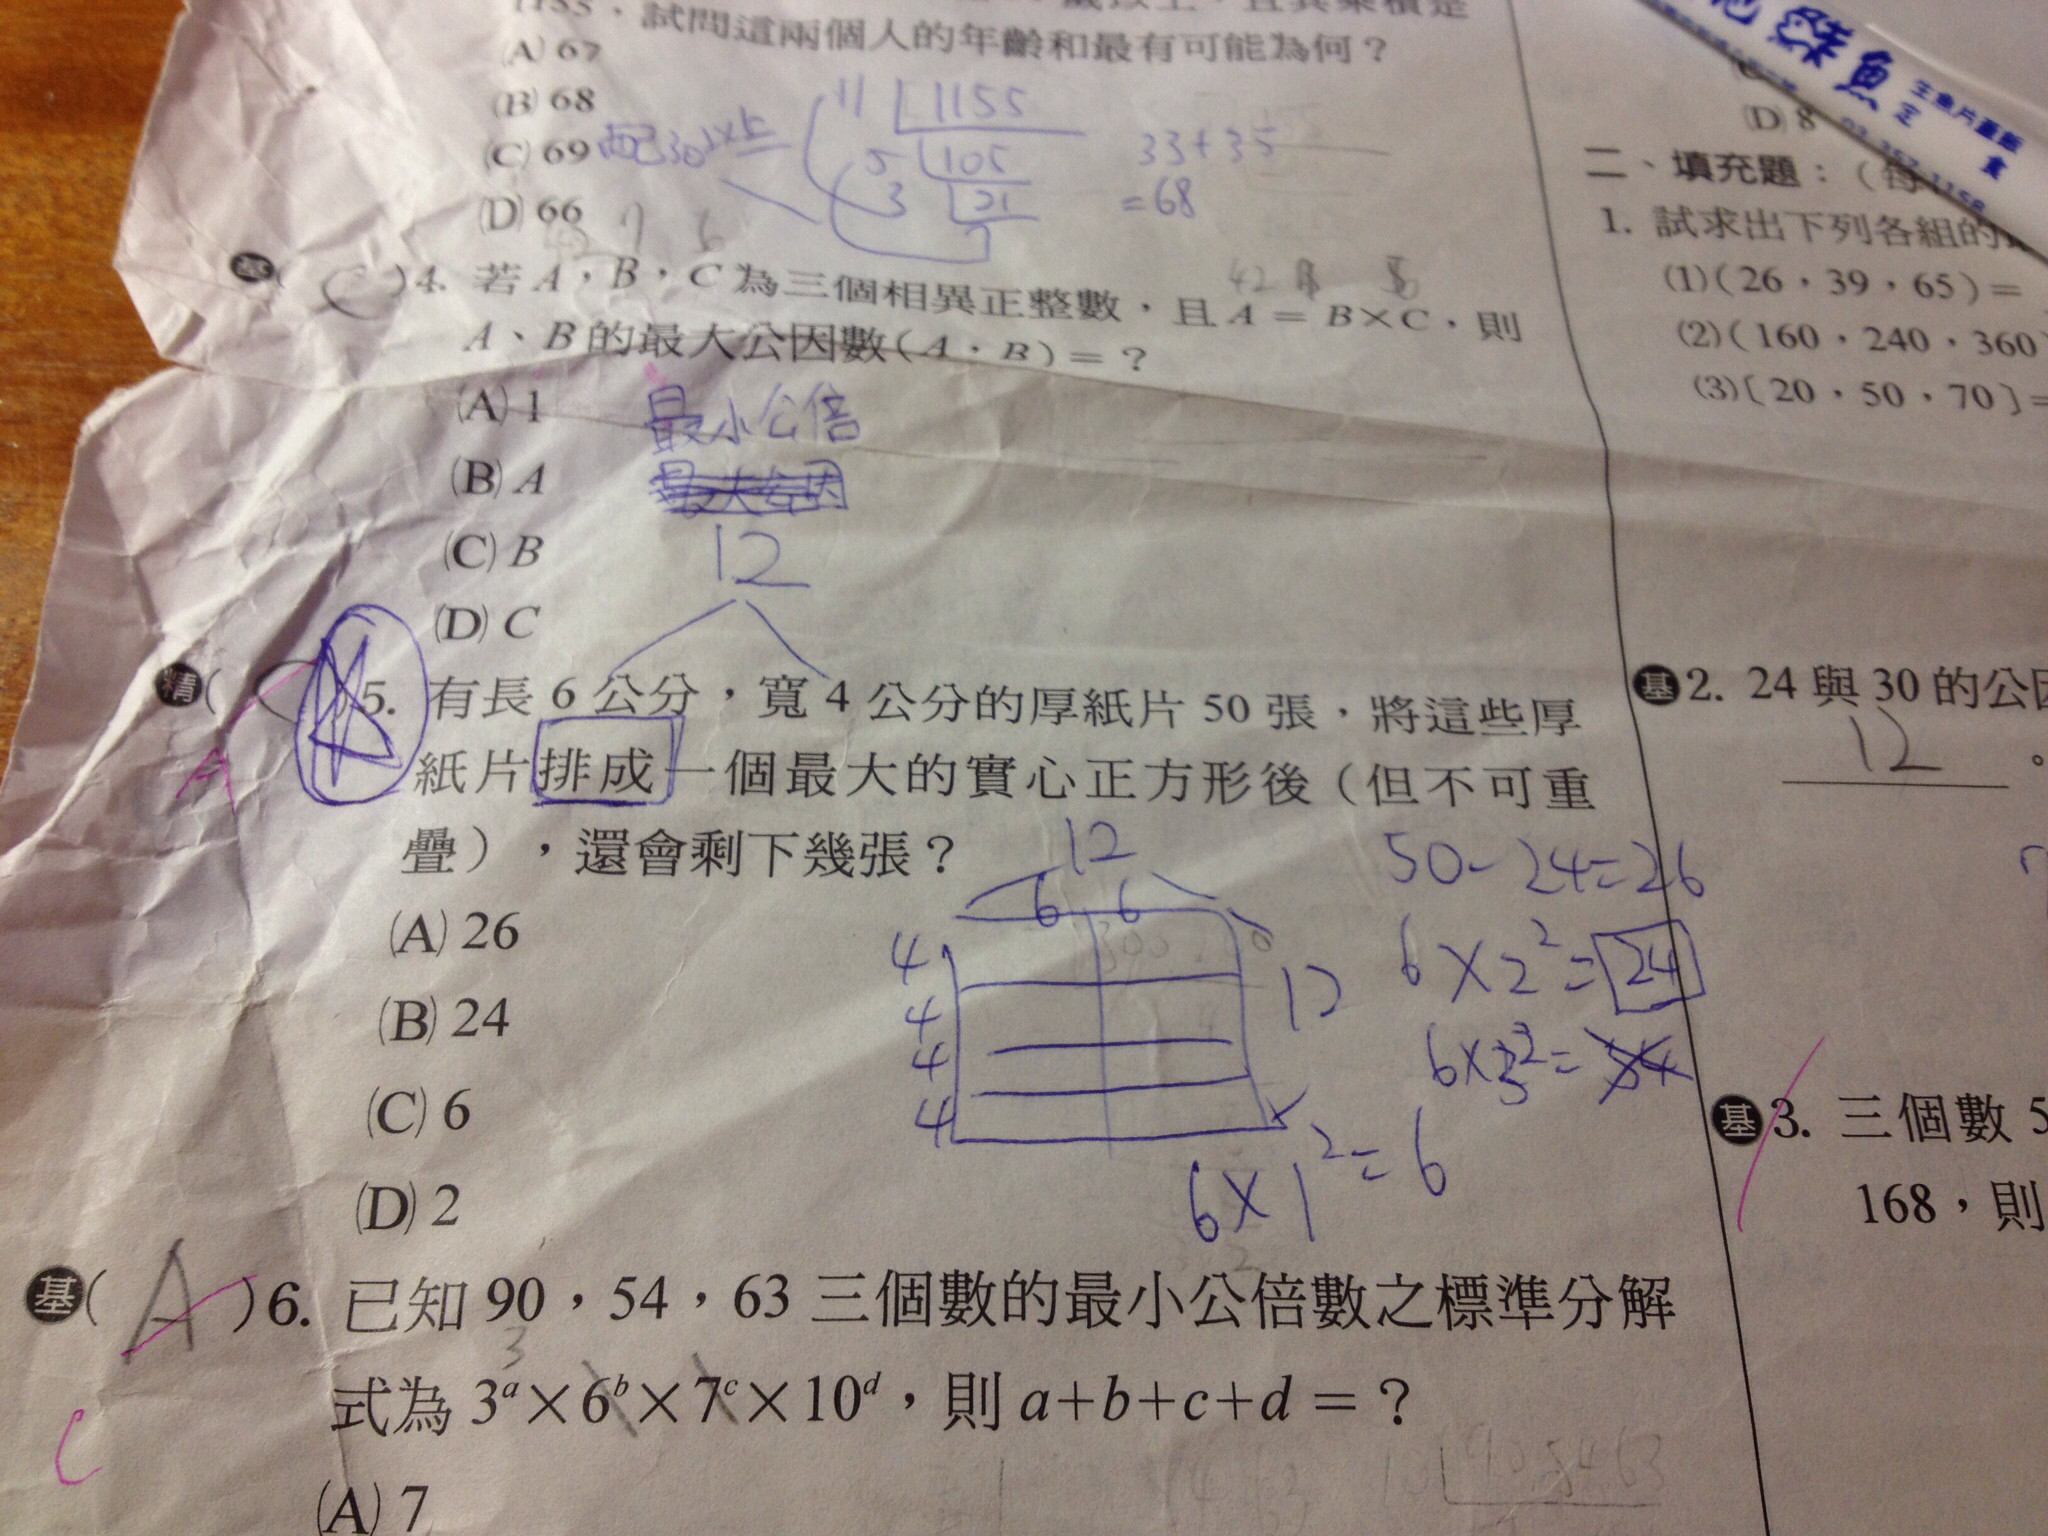 1155，試問這兩個人的年齡和最有可能為何？
(A) 67
(B) 68
(C) 69
(D) 66
11 1155
5 105
3 21
7
33+35
=68
( C )4. 若 A，B，C 為三個相異正整數，且 A = B×C，則
A、B 的最大公因數(A，B)＝？
(A) 1
(B) A
(C) B
(D) C
最小公倍
最大公因
12
精( )5. 有長 6 公分，寬 4 公分的厚紙片 50 張，將這些厚
紙片排成一個最大的實心正方形後（但不可重
疊），還會剩下幾張？
A
(A) 26
(B) 24
(C) 6
(D) 2
12
6 6
4
4
4
4
12
50-24=26
6×2²=24
6×3²=54
6×1²=6
基( A )6. 已知 90，54，63 三個數的最小公倍數之標準分解
式為 3ᵃ×6ᵇ×7ᶜ×10ᵈ，則 a+b+c+d＝？
3
C
(A) 7
(D) 8
二、填充題：(每
1. 試求出下列各組的
(1)(26，39，65)＝
(2)(160，240，360)
(3)〔20，50，70〕＝
基2. 24 與 30 的公因
12 。
基3. 三個數 5
168，則
魚
生魚片蓋飯